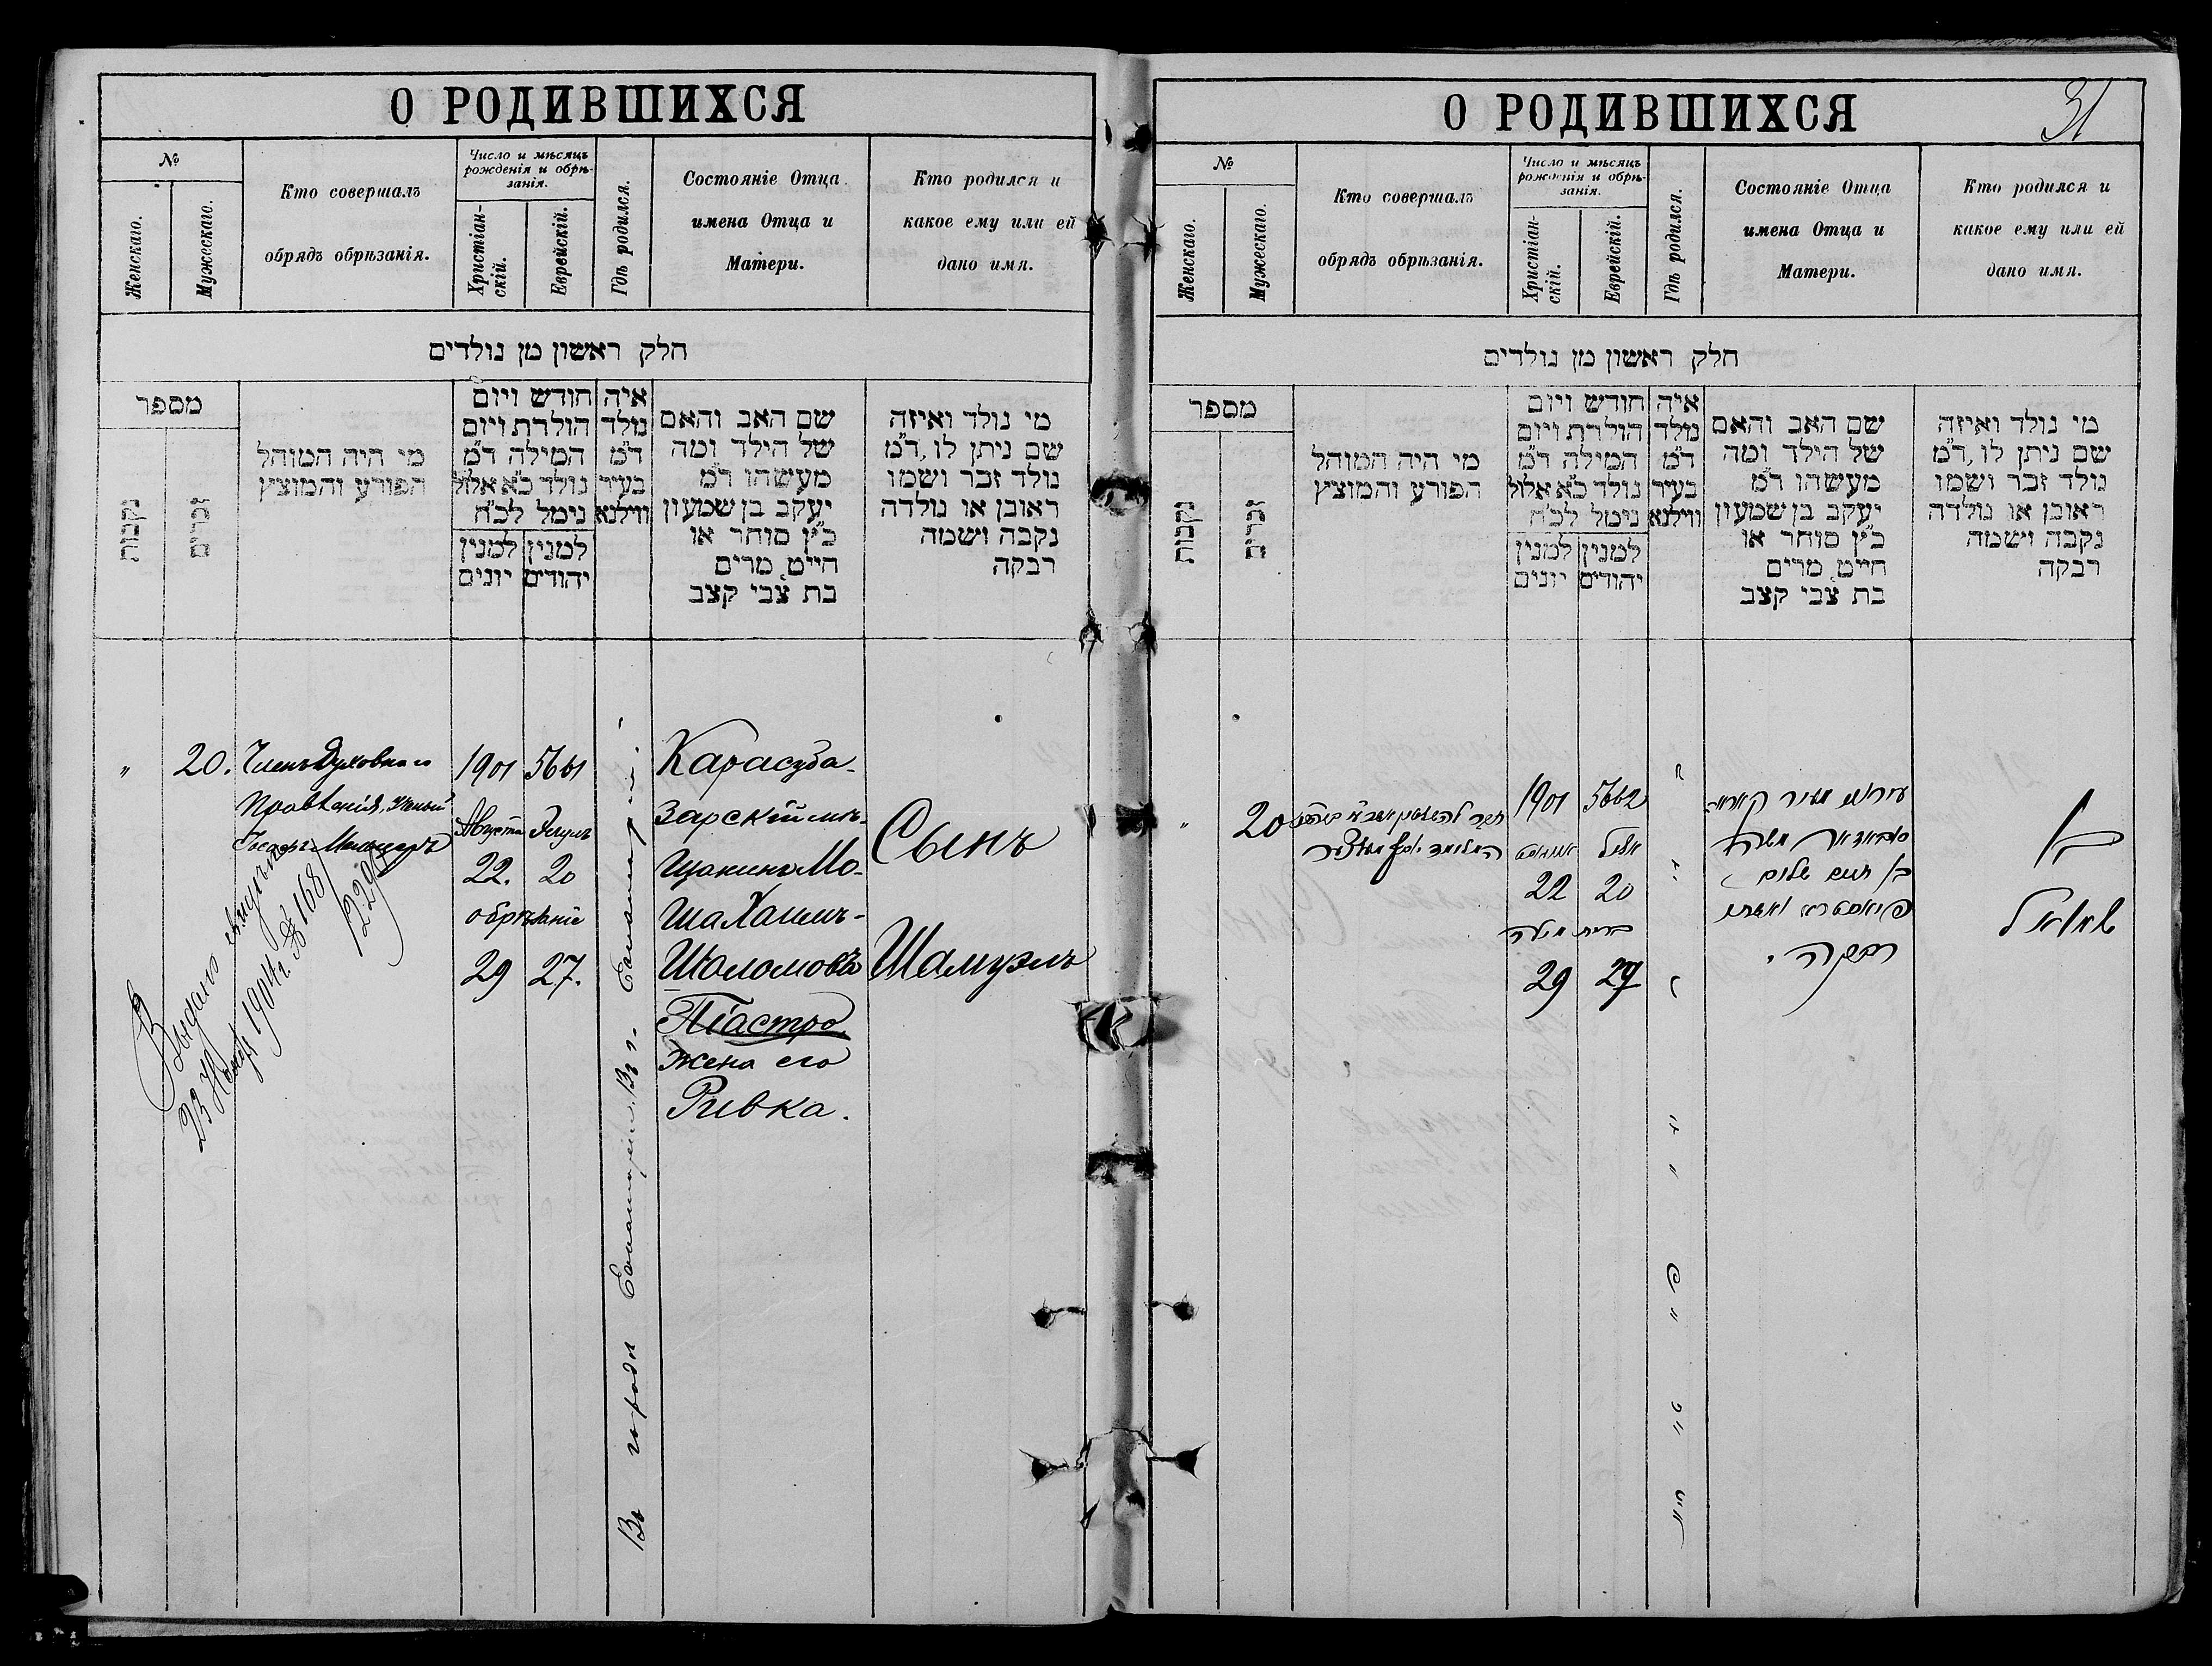 О РОДИВШИХСЯ
№
Женскаго.
Мужескаго.
Кто совершалъ
обрядъ обрѣзанія.
Число и мѣсяцъ
рожденія и обрѣ-
занія.
Христіан-
скій.
Еврейскій.
Гдѣ родился.
Состояніе Отца
имена Отца и
Матери.
Кто родился и
какое ему или ей
дано имя.
חלק ראשון מן נולדים
מספר
נקבות
זכרים
מי היה המוהל
הפורע והמוצץ
חודש ויום
הולדת ויום
המילה ד״מ
נולד כ״א אלול
נימל לכ״ח
למנין
יונים
למנין
יהודים
איה
נולד
ד״מ
בעיר
ווילנא
שם האב והאם
של הילד ומה
מעשהו ד״מ
יעקב בן שמעון
כ״ץ סוחר או
חייט, מרים
בת צבי קצב
מי נולד ואיזה
שם ניתן לו, ד״מ
נולד זכר ושמו
ראובן או נולדה
נקבה ושמה
רבקה
"
20.
Членъ Духовнаго
Правленія, Ученый
1901 5661
Августа Элулъ
22. 20
обрѣзаніе
29 27.
Въ городѣ
Карасуба-
зарскій мѣ-
щанинъ Мо-
ша Хаимъ-
Шоломовъ
Піастро
жена его
Ривка.
Сынъ
Шамуэлъ
Выдано
23 1904 г. № 168
1229
О РОДИВШИХСЯ
31
№
Женскаго.
Мужескаго.
Кто совершалъ
обрядъ обрѣзанія.
Число и мѣсяцъ
рожденія и обрѣ-
занія.
Христіан-
скій.
Еврейскій.
Гдѣ родился.
Состояніе Отца
имена Отца и
Матери.
Кто родился и
какое ему или ей
дано имя.
חלק ראשון מן נולדים
מספר
נקבות
זכרים
מי היה המוהל
הפורע והמוצץ
חודש ויום
הולדת ויום
המילה ד״מ
נולד כ״א אלול
נימל לכ״ח
למנין
יונים
למנין
יהודים
איה
נולד
ד״מ
בעיר
ווילנא
שם האב והאם
של הילד ומה
מעשהו ד״מ
יעקב בן שמעון
כ״ץ סוחר או
חייט, מרים
בת צבי קצב
מי נולד ואיזה
שם ניתן לו, ד״מ
נולד זכר ושמו
ראובן או נולדה
נקבה ושמה
רבקה
"
20
1901 5662
אלול
22 20
ברית מילה
29 27
משה
בן חיים שלום
פיאסטרא ואשתו
רבקה
בן
שמואל